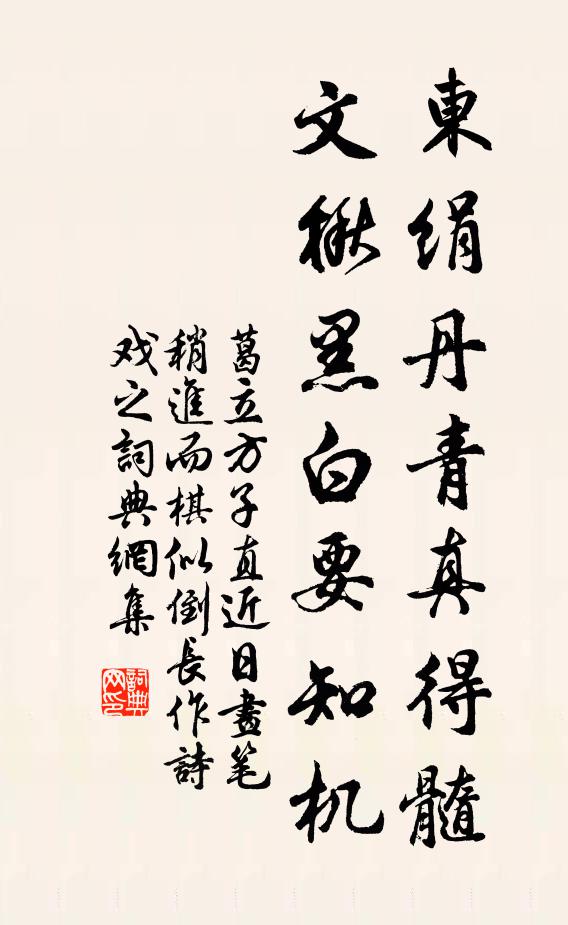 東絹丹青真得髓
文楸黑白要知机
葛立方子直近日畫笔
稍進而棋似倒長作詩
戏之詞典網集
詞典
网印